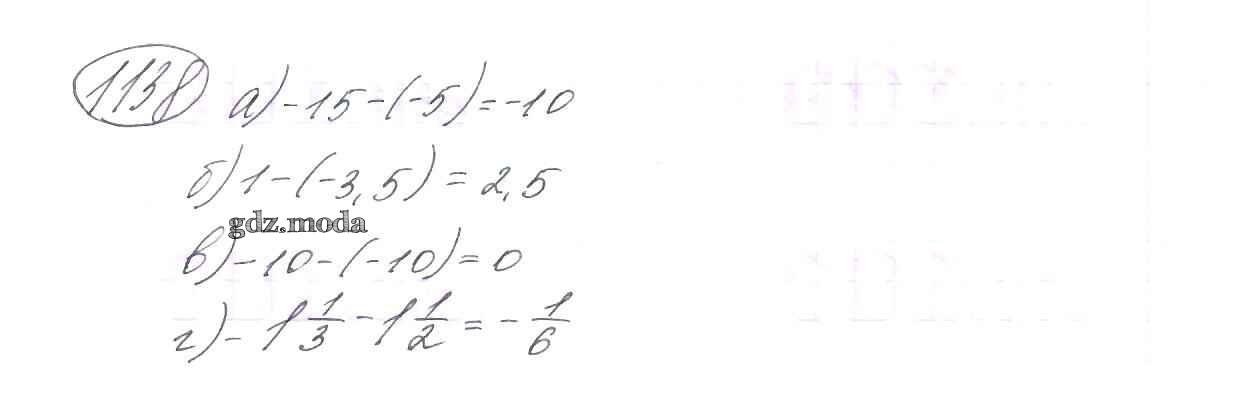 1138 а) -15-(-5)=-10
б) 1-(-3,5)=2,5
gdz.moda
в) -10-(-10)=0
г) -1 1/3 - 1 1/2 = - 1/6